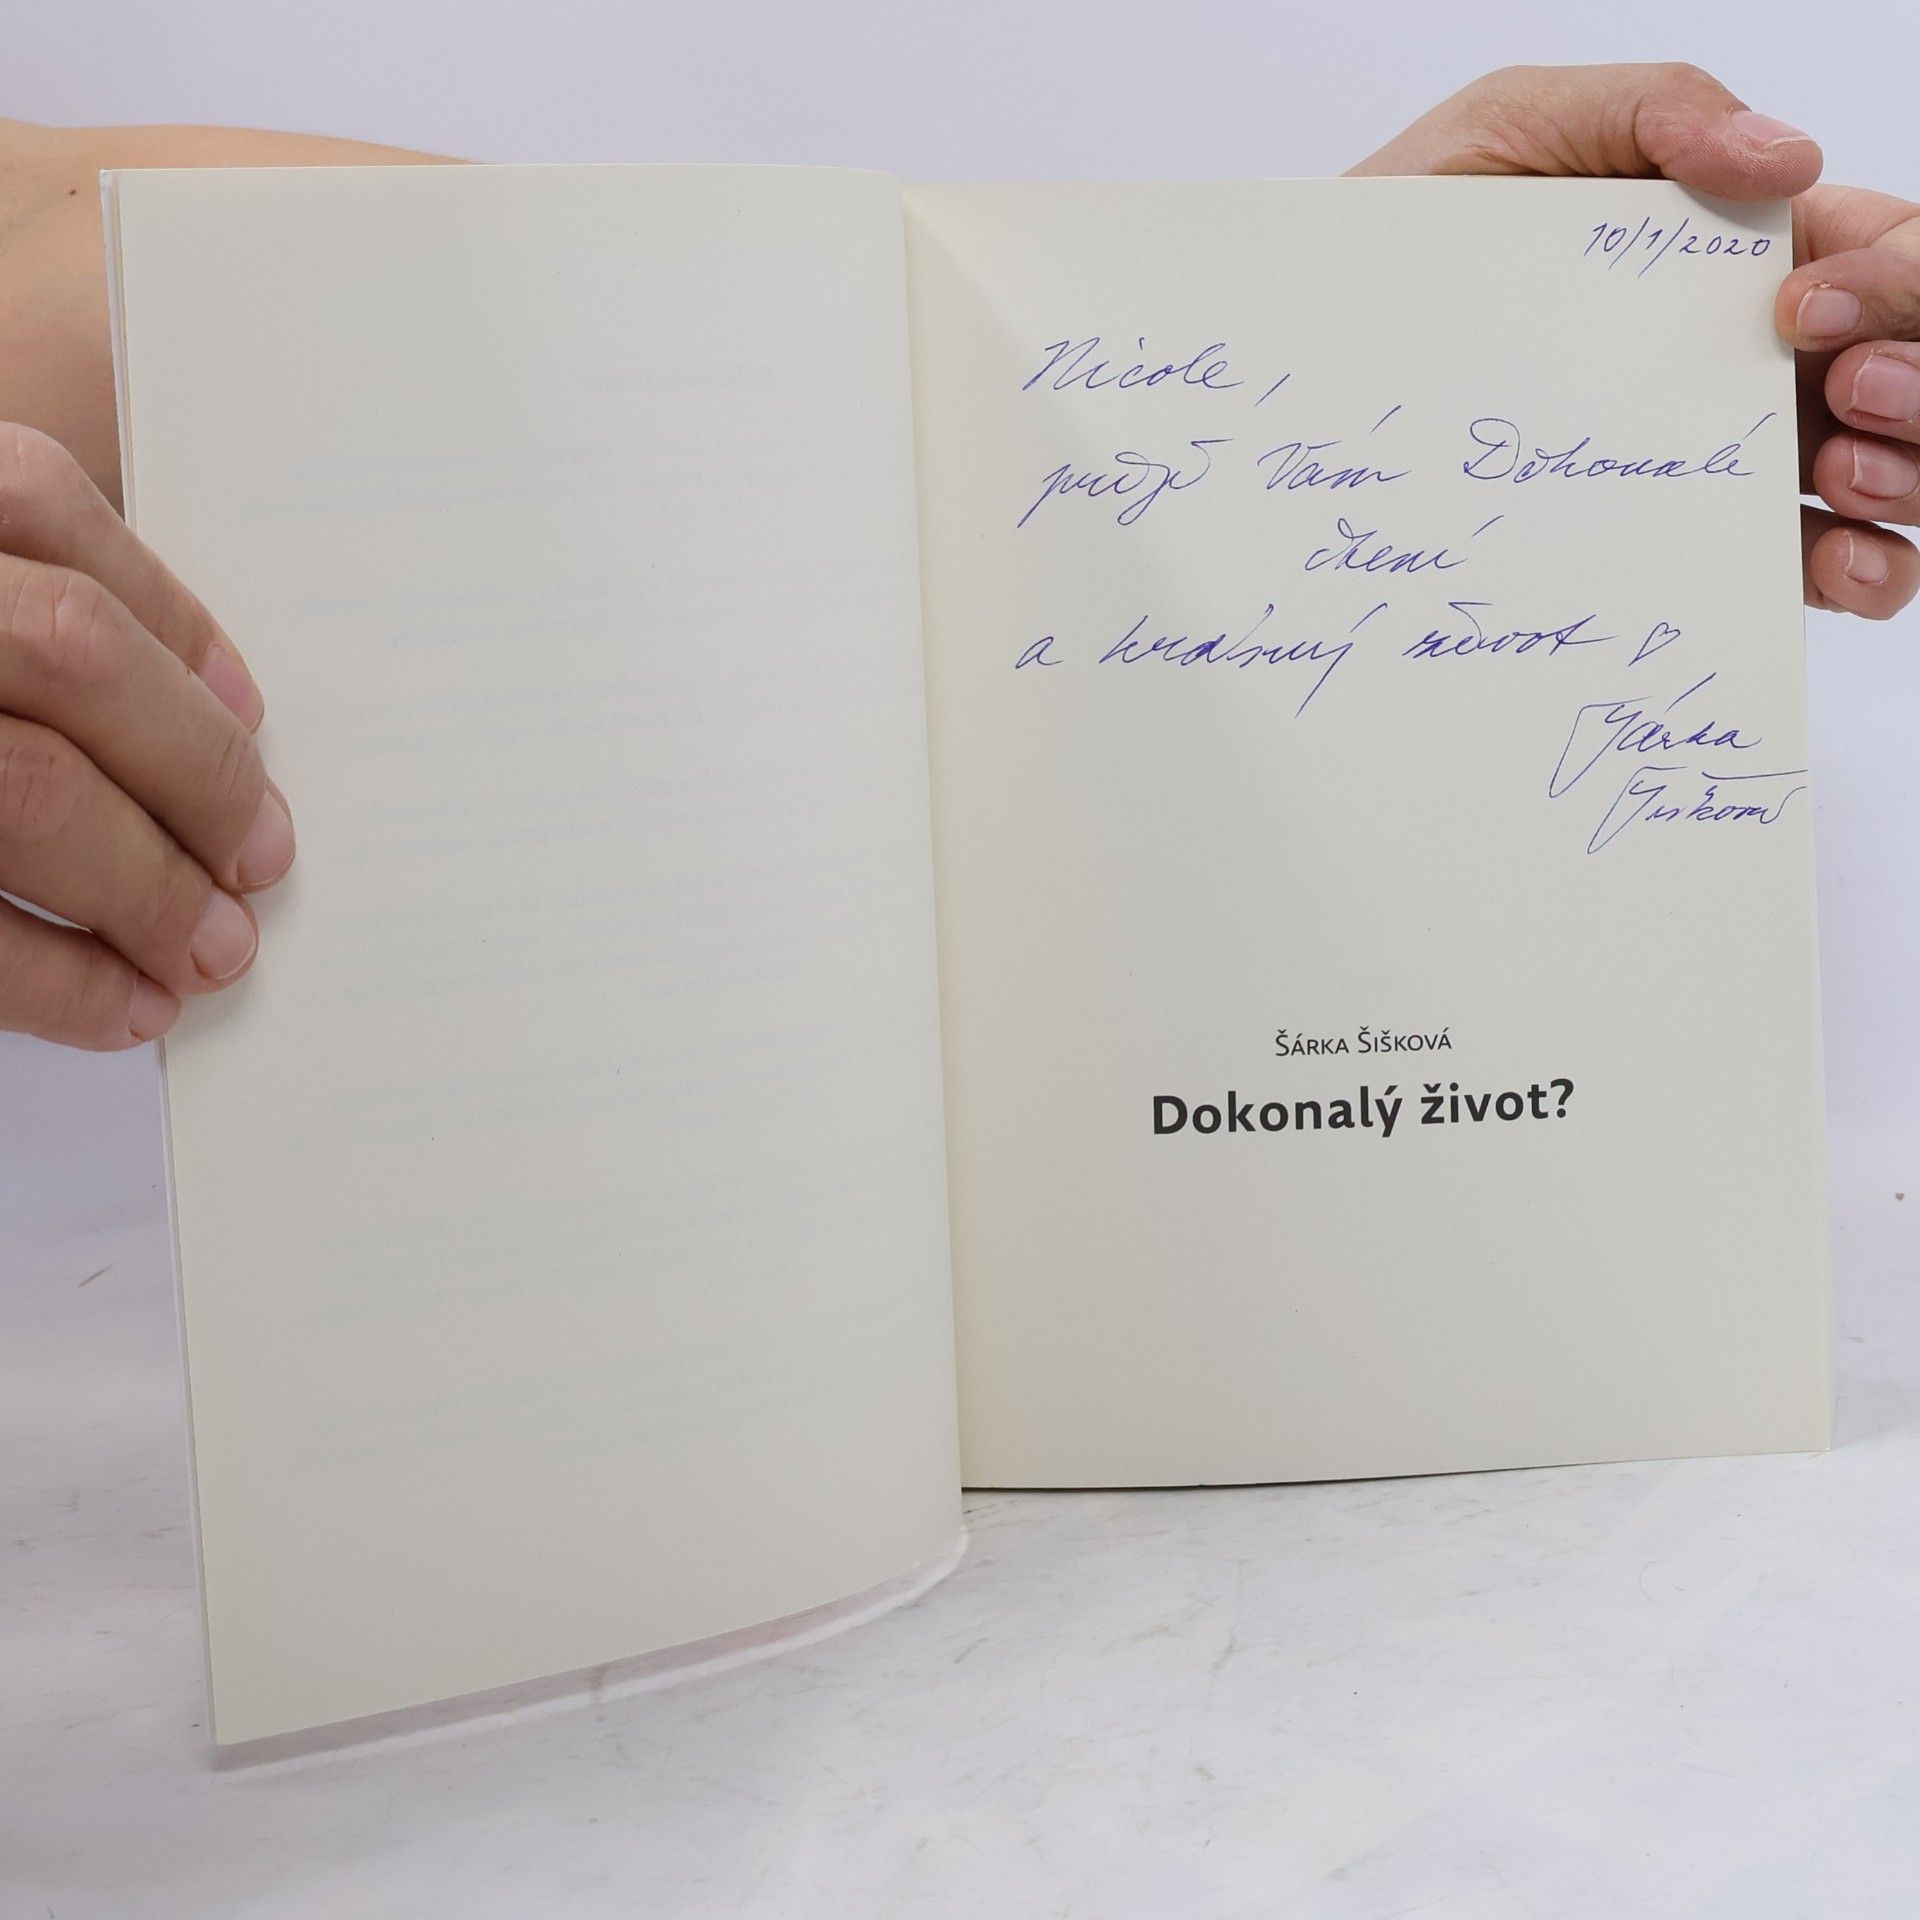 10/1/2020
Nicole,
přeji Vám Dokonalé
čtení
a krásný život ♡
Šárka
Šišková
ŠÁRKA ŠIŠKOVÁ
Dokonalý život?